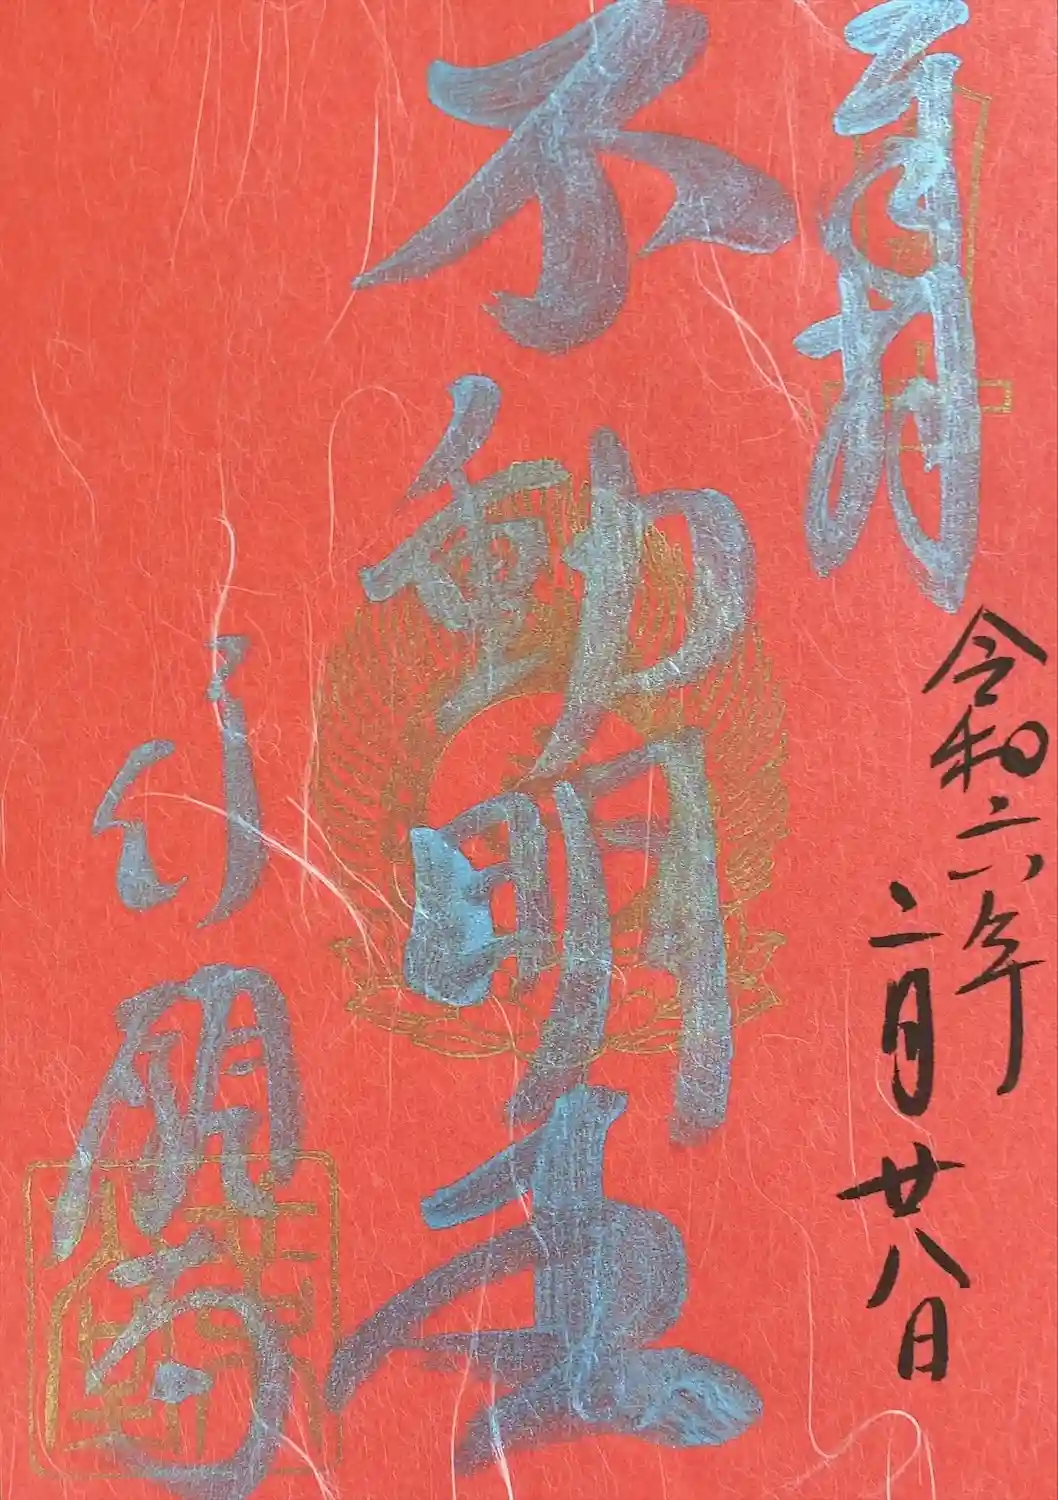 奉拝
令和六年
二月廿八日
不動明王